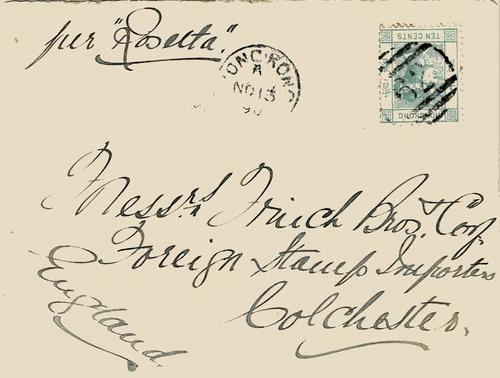 per "Rosetta".
HONG KONG
A
NO 13
90
TEN CENTS
HONG KONG
Messrs Finch Bros. & Corp.
Foreign Stamp Importers
Colchester.
England.